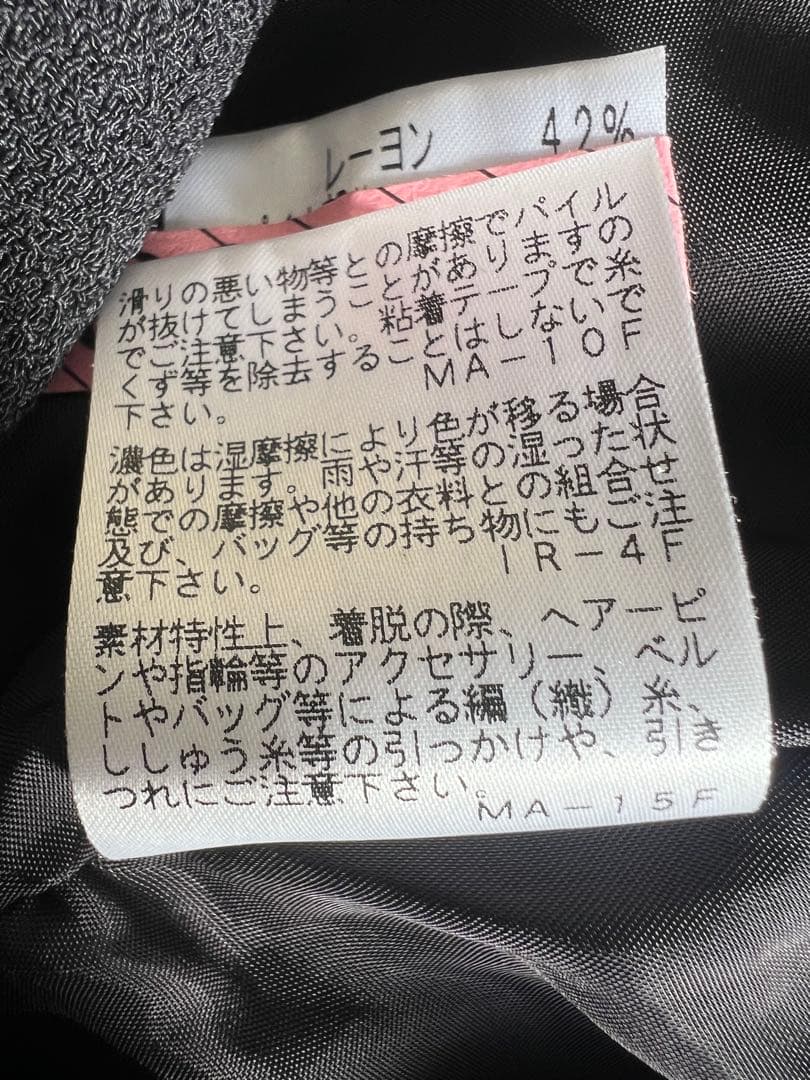 レーヨン 42%
滑りの悪い物等との摩擦でパイル
が抜けてしまうことがありますの
でご注意下さい。粘着テープで糸
くず等を除去することはしないで
下さい。 MA-10F
濃色は湿摩擦により色が移る場合
があります。雨や汗等の湿った状
態での摩擦や他の衣料との組合せ
及び、バッグ等の持ち物にもご注
意下さい。 IR-4F
素材特性上、着脱の際、ヘアーピ
ンや指輪等のアクセサリー、ベル
トやバッグ等による編（織）糸、
ししゅう糸等の引っかけや、引き
つれにご注意下さい。 MA-15F